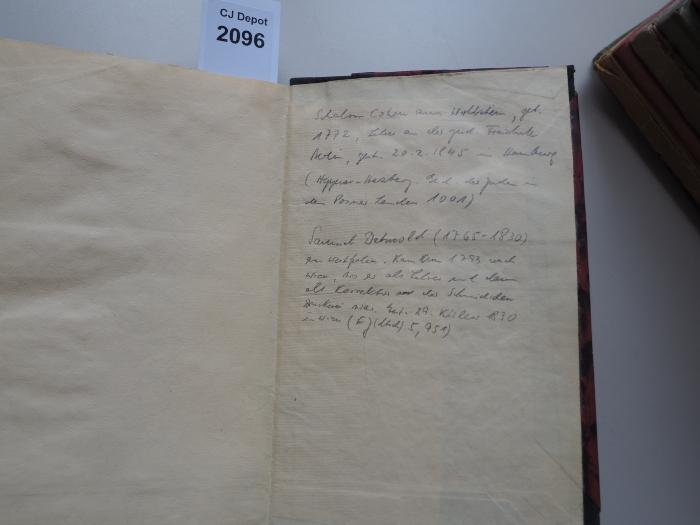 CJ Depot
2096
Schalom Cohen aus Wollstein, geb.
1772, Lehrer an der jüd. Freischule
Berlin, gest. 20.2.1845 in Hamburg
(Heppner-Herzberg Gesch. der Juden in
den Posner Landen 1001)
Samuel Detmold (1765-1830)
in Westfalen. Kam 1793 nach
Wien, wo er als Lehrer und dann
als Korrektor der Schmidschen
Druckerei Gest. 29. Kislew 1830
in Wien (EJ (dtsch) 5, 951)